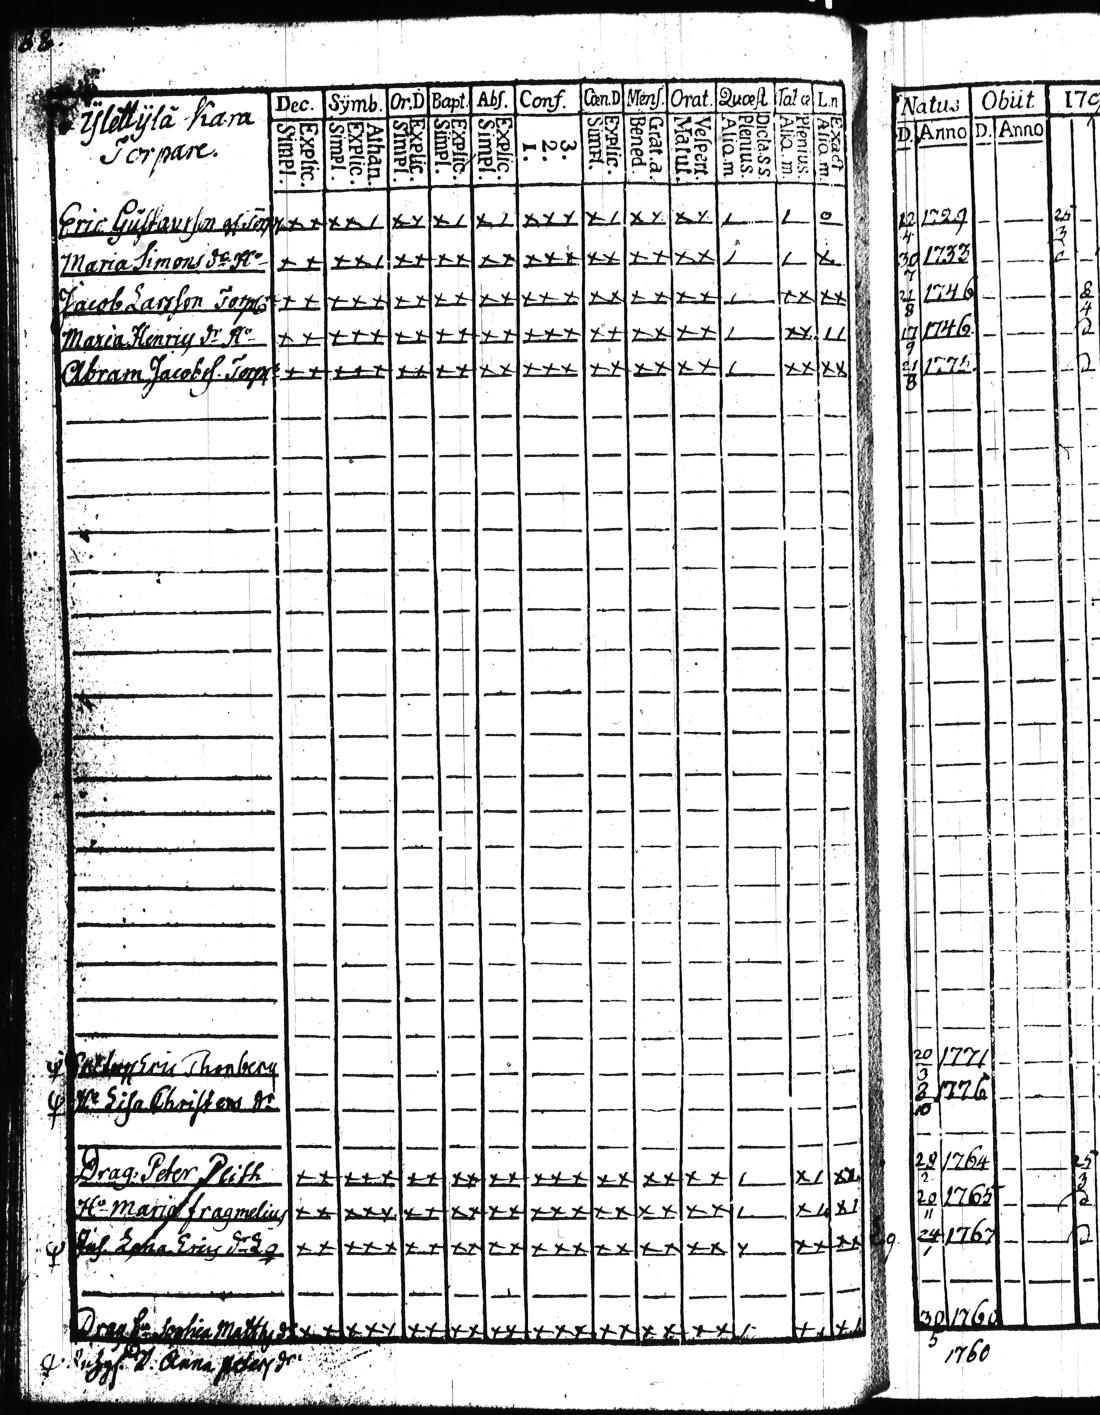 88.
Ÿlettÿlä Kara
Torpare.
Dec. Sÿmb. Or.D Bapt. Abs. Conf. Cœn.D Mens. Orat. Quæst Tal œ L.n
Simpl. Explic. Simpl. Explic. Athan. Simpl. Explic. Simpl. Explic. Simpl. Explic. 1. 2. 3. Simpl. Explic. Bened. Grat.a. Matut. Vespert. Alio.m Plenius. Dicta.ss Alio.m. Plenius. Alio m. Exact
Natus Obiit 179
D. Anno D. Anno
Eric Gustavsson 12/4 1729 25/3
Maria Simons dr Ho 30/7 1733
Jacob Larsson Torp 21/8 1746 8/4
Maria Henrics dr Ho 17/9 1746
Abram Jacobss. Torp 21/8 1775
Eric Thonberg 20/3 1771
Lisa Christers dr 8/10 1776
Drag. Peter Pleith 29/2 1764 25/3
Ho Maria fragmelius 20/11 1765
Erics dr 24/1 1767
Drag. Sophia Matths dr 30/5 1760
Anna Peters dr 1760